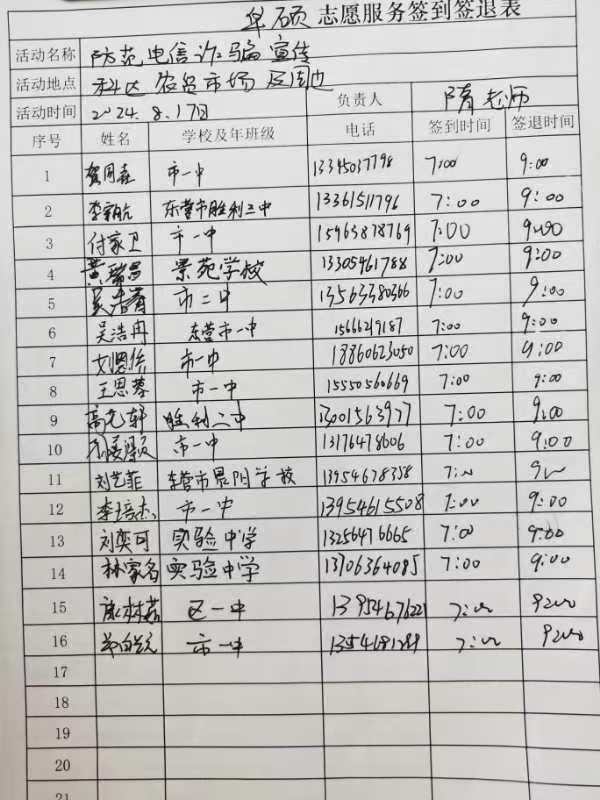 华硕 志愿服务签到签退表
活动名称 防范电信诈骗宣传
活动地点 科达农贸市场及周边
活动时间 2024.8.17日 负责人 隋老师
序号 姓名 学校及年班级 电话 签到时间 签退时间
1 贺同森 市一中 13345037798 7:00 9:00
2 李新航 东营市胜利二中 13361511796 7:00 9:00
3 付家卫 市一中 15963878769 7:00 9:00
4 黄 景苑学校 13305461788 7:00 9:00
5 市二中 13563380366 7:00 9:00
6 吴浩冉 东营市一中 15666219187 7:00 9:00
7 市一中 18860623050 7:00 9:00
8 王思蓉 市一中 15550560669 7:00 9:00
9 高 轩 胜利二中 13001563977 7:00 9:00
10 市一中 13176478606 7:00 9:00
11 刘艺菲 东营市晨阳学校 13954678358 7:00 9:00
12 李培杰 市一中 13954615508 7:00 9:00
13 刘奕可 实验中学 13256476665 7:00 9:00
14 林家名 实验中学 13706364085 7:00 9:00
15 区一中 13954676221 7:00 9:00
16 市一中 7:00 9:00
17
18
19
20
21